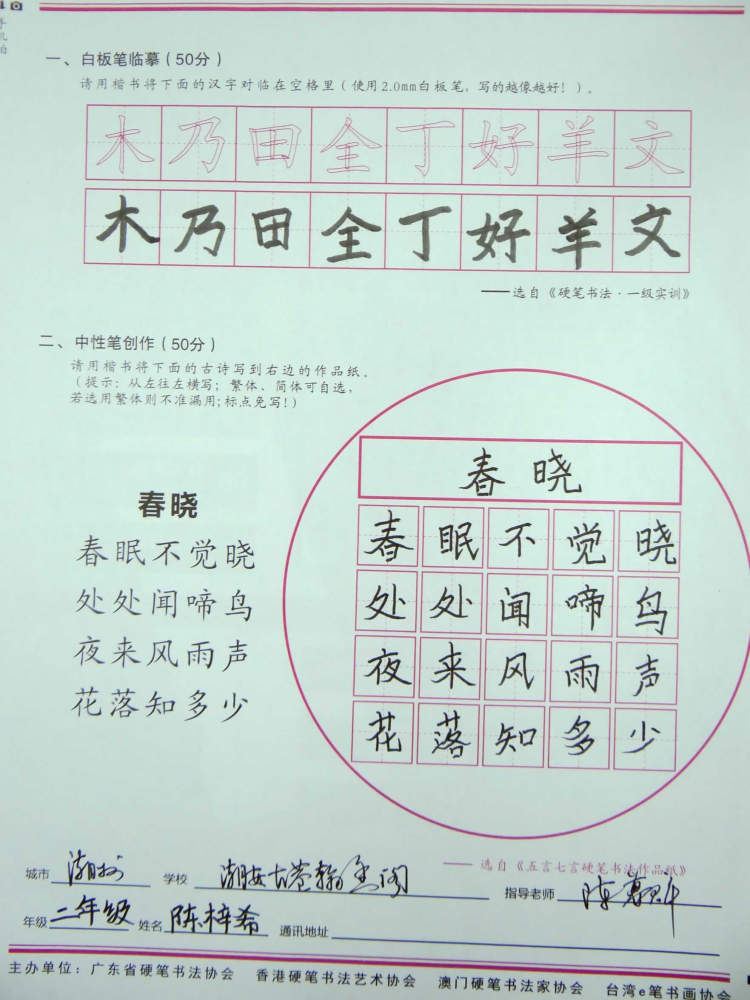 手
机
拍
一、白板笔临摹(50分)
请用楷书将下面的汉字对临在空格里(使用2.0mm白板笔,写的越像越好!)。
木乃田全丁好羊文
木乃田全丁好羊文
——选自《硬笔书法·一级实训》
二、中性笔创作(50分)
请用楷书将下面的古诗写到右边的作品纸。
(提示:从左往左横写;繁体、简体可自选,
若选用繁体则不准漏用;标点免写!)
春晓
春眠不觉晓
处处闻啼鸟
夜来风雨声
花落知多少
春晓
春眠不觉晓
处处闻啼鸟
夜来风雨声
花落知多少
——选自《五言七言硬笔书法作品纸》
城市 潮州 学校 潮安古巷翰 阁 指导老师 陈
年级 二年级 姓名 陈梓希 通讯地址
主办单位:广东省硬笔书法协会 香港硬笔书法艺术协会 澳门硬笔书法家协会 台湾e笔书画协会